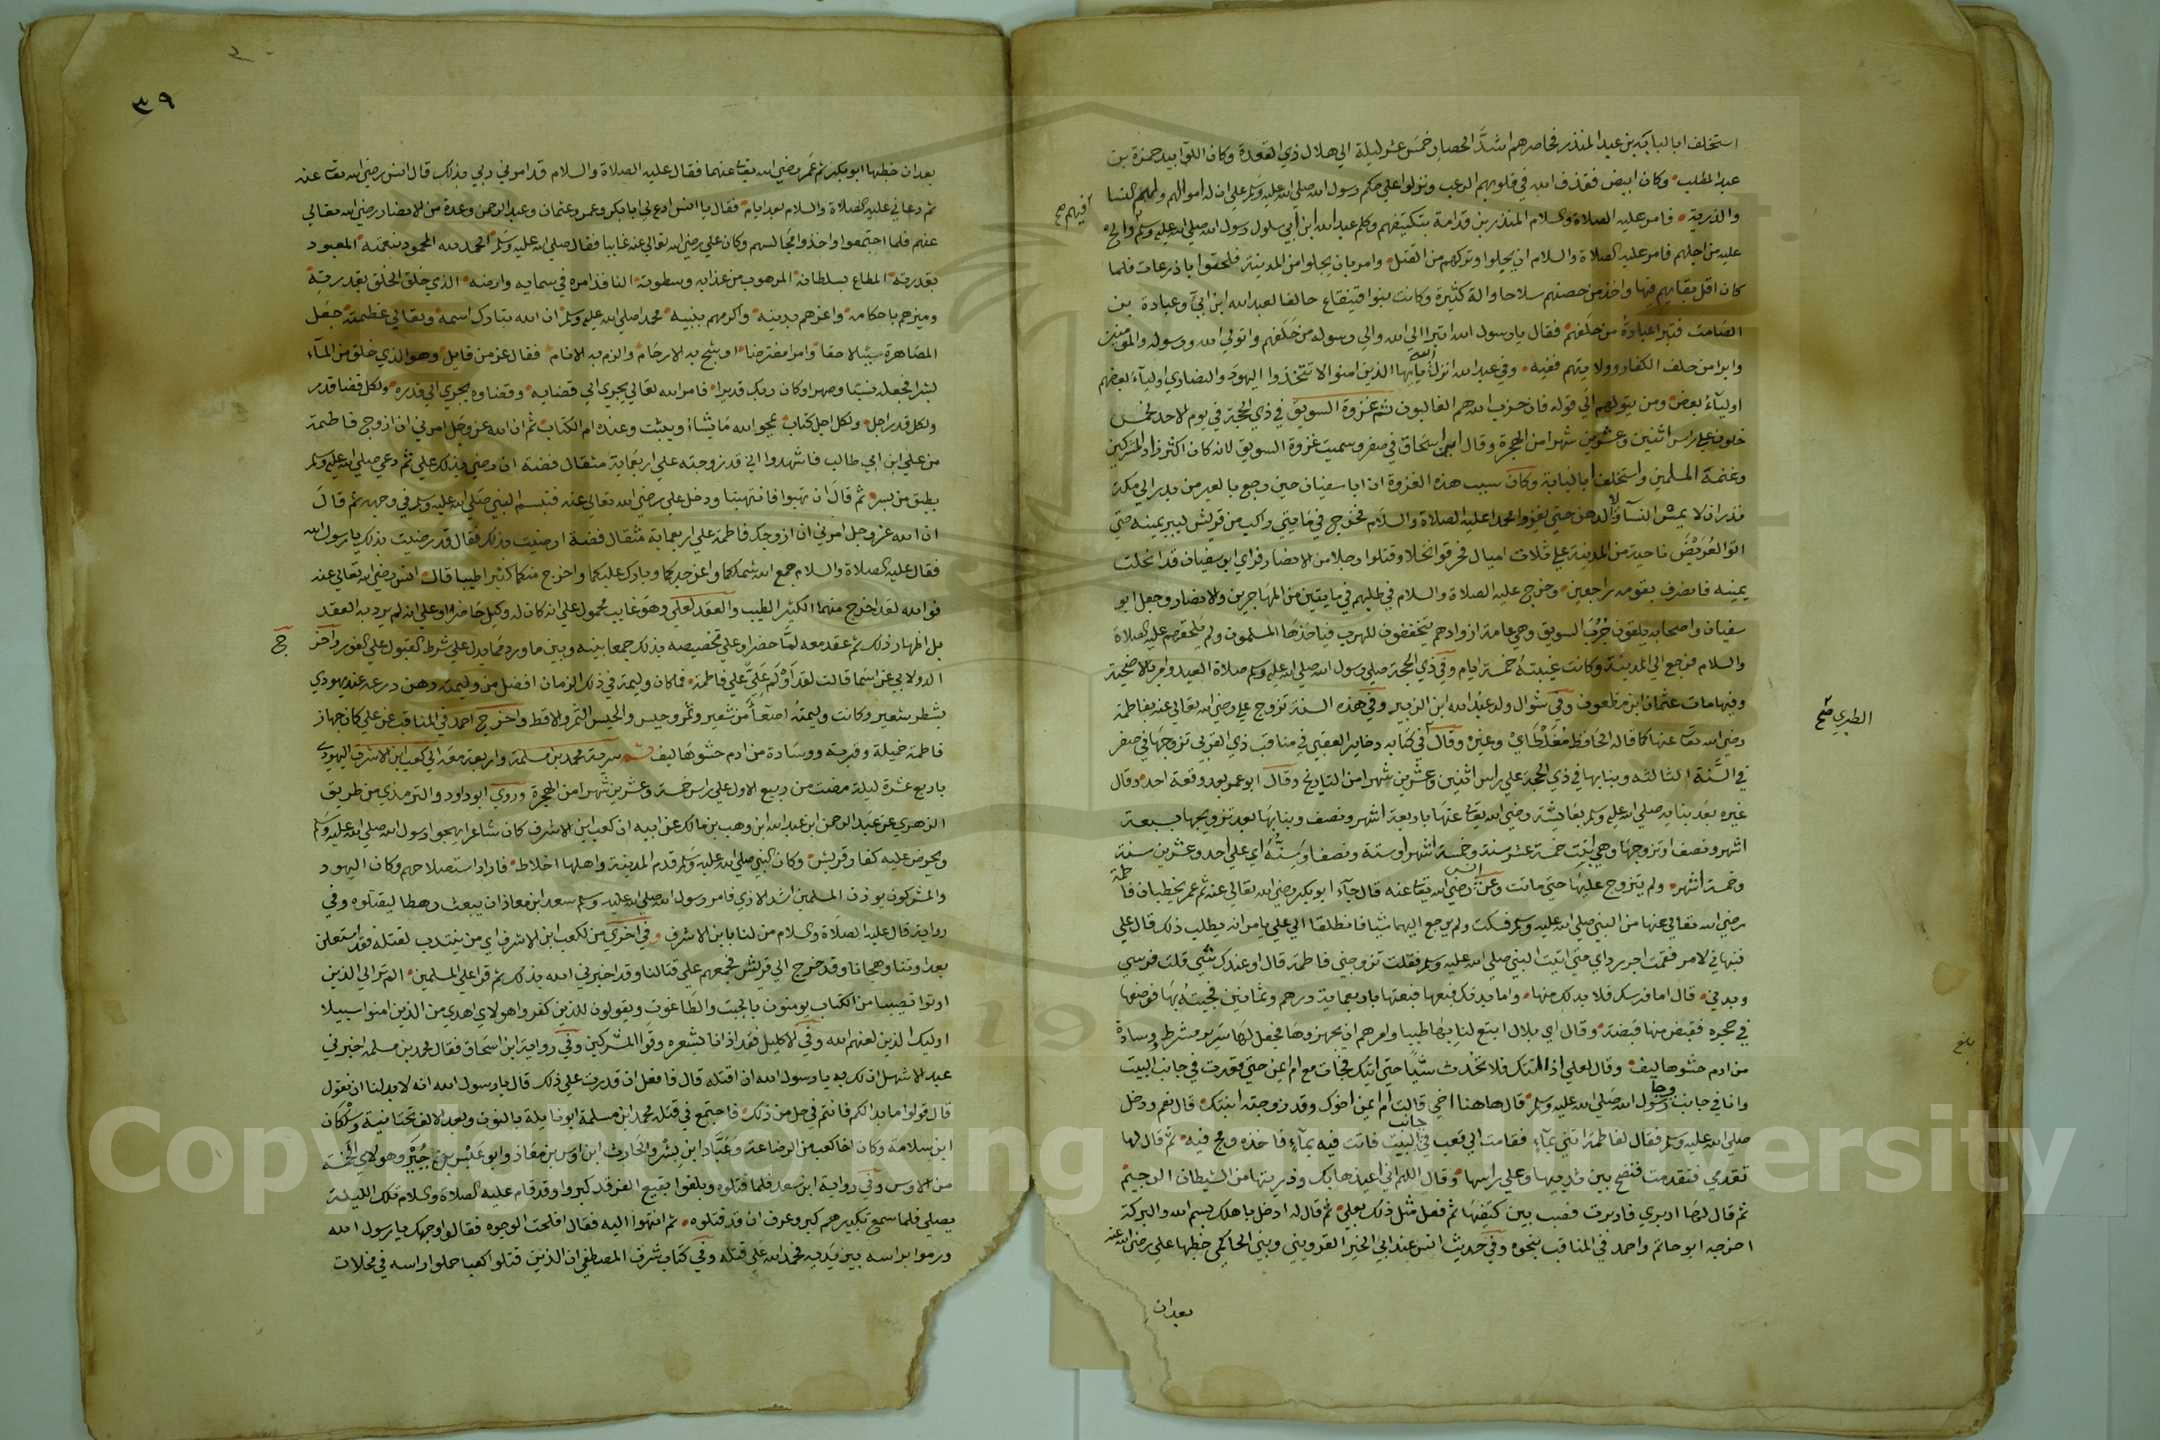 استخلف ابا لبابة بن عبد المنذر فحاصرهم اشد الحصار خمس عشر ليلة الي هلال ذي القعدة وكان اللوا بيد حمزة بن
عبد المطلب وكان ابيض فقذف الله في قلوبهم الرعب ونزلوا علي حكم رسول الله صلي الله عليه وسلم علي ان له اموالهم ولهم النسا
والذرية فامر عليه الصلاة والسلام المنذر بن قدامة بتكتيفهم وكلم عبد الله ابن أبي سلول رسول الله صلي الله عليه وسلم فيهم والح
عليه من اجلهم فامر عليه الصلاة والسلام ان يجلوا وتركهم من القتل وامر بان يجلوا من المدينة فلحقوا باذرعات فلما
كان اقل بقايهم فيها واخذ من حصنهم سلاحا والة كثيرة وكانت بنوا قينقاع حالفا لعبد الله ابن ابي وعبادة بن
الصامت فتبرا عبادة من حلفهم فقال يا رسول الله اتبرا الي الله والي رسوله من حلفهم واتولي الله ورسوله والمومنين
وابرا من حلف الكفار وولايتهم ففيه وفي عبد الله انزل الله يايها الذين امنوا لا تتخذوا اليهود والنصاري اوليآء بعضهم
اوليآء بعض ومن يتولهم الي قوله فان حزب الله هم الغالبون ثم غزوة السويق في ذي الحجة في يوم الاحد لخمس
خلون علي راس اثنين وعشرين شهرا من الهجرة وقال ابن اسحاق في صفر وسميت غزوة السويق لانه كان اكثر زاد المشركين
وغنمة المسلمين واستخلف أبا لبابة وكان سبب هذه الغزوة ان ابا سفيان حين رجع بالعير من بدر الي مكة
نذر ان لا يمس النسآ ولا الدهن حتي يغزوا محمدا عليه الصلاة والسلام فخرج في مايتي راكب من قريش ليبر يمينه حتي
اتوا العريض ناحية من المدينة علي ثلاث اميال فحرقوا نخلا وقتلوا رجلا من الانصار فراي ابو سفيان قد انحلت
يمينه فانصرف بقومه راجعين وخرج عليه الصلاة والسلام في طلبهم في مايتين من المهاجرين والانصار وجعل ابو
سفيان واصحابه يلقون جرب السويق وهي عامة ازوادهم يتخففون للهرب فياخذها المسلمون ولم يلحقهم عليه الصلاة
والسلام فرجع الي المدينة وكانت غيبته خمسة ايام وفي ذي الحجة صلي رسول الله صلي الله عليه وسلم صلاة العيد وامر بالاضحية
وفيها مات عثمان ابن مظعون وفي شوال ولد عبد الله ابن الزبير وفي هذه السنة تزوج علي رضي الله تعالي عنه بفاطمة
رضي الله تعا عنها كما قاله الحافظ مغلطاي وغيره وقال الطبري في كتابه دخاير العقبي في مناقب ذي القربي تزوجها في صفر
في السنة الثالثه وبنا بها في ذي الحجة علي راس اثنين وعشرين شهرا من التاريخ وقال ابو عمر بعد وقعة احد وقال
غيره بعد بنايه صلي الله عليه وسلم بعايشة رضي الله تعا عنها باربعة اشهر ونصف وبنا بها بعد تزويجها بسبعة
اشهر ونصف او تزوجها وهي ابنت خمسة عشر سنة وخمسة اشهر او ستة ونصفا وسنه اي علي احد وعشرين سنة
وخمسة أشهر ولم يتزوج عليها حتي ماتت وعن انس رضي الله تعا عنه قال جآء ابو بكر رضي الله تعالي عنه ثم عمر يخطبان فاطمة
رضي الله تعالي عنها من النبي صلي الله عليه وسلم فسكت ولم يرجع اليهما شيا فانطلقا الي علي يامرانه بطلب ذلك قال علي
فنبهاني لامر فقمت اجر رداي حتي اتيت النبي صلي الله عليه وسلم فقلت تزوجني فاطمة قال او عندك شي قلت فرسي
وبدني قال اما فرسك فلا بد لك منها واما بدنك فبعها فبعتها باربعماية درهم وثمانين فجيته بها فوضعها
في حجره فقبض منها قبضة وقال اي بلال ابتع لنا بها طيبا وامرهم ان يجهزوها فجعل لها سرير مشرط ووسادة
من ادم حشوها ليف وقال لعلي اذا اتتك فلا تحدث شيا حتي اتيك فجات مع ام ايمن حتي قعدت في جانب البيت
وانا في جانب وجا رسول الله صلي الله عليه وسلم قال هاهنا اخي قالت ام ايمن اخوك وقد زوجته ابنتك قال نعم ودخل
صلي الله عليه وسلم فقال لفاطمة ايتني بمآء فقامت الي قعب في جانب البيت فاتت فيه بمآء فاخذه ومج فيه ثم قال لها
تقدمي فتقدمت فنضح بين ثدييها وعلي راسها وقال اللهم اني اعيذها بك وذريتها من الشيطان الرجيم
ثم قال لها ادبري فادبرت فصب بين كتفيها ثم فعل مثل ذلك بعلي ثم قال له ادخل باهلك بسم الله والبركة
اخرجه ابو حاتم واحمد في المناقب بنحوه وفي حديث انس عند ابي الخير القزويني وبني الحاكمي خطبها علي رضي الله عنه
بعد ان
فيهم صح
الطبري صح
بلغ
٣٩
بعد ان خطبها ابو بكر ثم عمر رضي الله تعا عنهما فقال عليه الصلاة والسلام قد امرني ربي بذلك قال انس رضي الله تعا عنه
ثم دعاني عليه الصلاة والسلام بعد ايام فقال يا انس ادع لي ابا بكر وعمر وعثمان وعبد الرحمن وعدة من الانصار رضي الله تعالي
عنهم فلما اجتمعوا واخذوا مجالسهم وكان علي رضي الله تعالي عنه غايبا فقال صلي الله عليه وسلم الحمد لله المحمود بنعمته المعبود
بقدرته المطاع بسلطانه المرهوب من عذابه وسطوته النافذ امره في سمايه وارضه الذي خلق الخلق بقدرته
وميزهم باحكامه واعزهم بدينه واكرمهم بنبيه محمد صلي الله عليه وسلم ان الله تبارك اسمه وتعالي عظمته جعل
المصاهرة سببا لاحقا وامرا مفترضا اوشج به الارحام والزم به الانام فقال عز من قايل وهو الذي خلق من المآء
بشرا فجعله نسبا وصهرا وكان ربك قديرا فامر الله تعالي يجري الي قضايه وقضاوه يجري الي قدره ولكل قضا قدر
ولكل قدر اجل ولكل اجل كتاب يمحوا الله ما يشاء ويثبت وعنده ام الكتاب ثم ان الله عز وجل امرني ان ازوج فاطمة
من علي ابن ابي طالب فاشهدوا اني قد زوجته علي اربعماية مثقال فضة ان رضي بذلك علي ثم دعي صلي الله عليه وسلم
بطبق من بسر ثم قال انتهبوا فانتهبنا ودخل علي رضي الله تعالي عنه فتبسم النبي صلي الله عليه وسلم في وجهه ثم قال
ان الله عز وجل امرني ان ازوجك فاطمة علي اربعماية مثقال فضة ارضيت بذلك فقال قد رضيت بذلك يا رسول الله
فقال عليه الصلاة والسلام جمع الله شملكما واعز جدكما وبارك عليكما واخرج منكما كثيرا طيبا قال انس رضي الله تعالي عنه
فوالله لقد اخرج منهما الكثير الطيب والعقد لعلي وهو غايب محمول علي انه كان له وكيل حاضرا او علي انه لم يرد به العقد
بل اظهار ذلك ثم عقد معه لما حضر او علي تخصيصه بذلك جمعا بينه وبين ما ورد مما يدل علي شرط القبول علي الفور واخرج
الدولابي عن اسما قالت لقد أولم علي علي فاطمة فما كان وليمة في ذلك الزمان افضل من وليمته رهن درعه عند يهودي
بشطر شعير وكانت وليمته اصعا من شعير وتمر وحيس والحيس التمر والاقط واخرج احمد في المناقب عن علي كان جهاز
فاطمة خميلة وقربة ووسادة من ادم حشوها ليف ثم سرية محمد بن مسلمة واربعة معه الي كعب ابن الاشرف اليهودي
باربع عشرة ليلة مضت من ربيع الاول علي راس خمسة وعشرين شهرا من الهجرة وروي ابو داود والترمذي من طريق
الزهري عن عبد الرحمن ابن عبد الله ابن وهب بن مالك عن ابيه ان كعب ابن الاشرف كان شاعرا يهجوا رسول الله صلي الله عليه وسلم
ويحرض عليه كفار قريش وكان النبي صلي الله عليه وسلم قدم المدينة واهلها اخلاط فاراد استصلاحهم وكان اليهود
والمشركون يوذن المسلمين اشد الاذي فامر رسول الله صلي الله عليه وسلم سعد ابن معاذ ان يبعث رهطا ليقتلوه وفي
رواية قال عليه الصلاة والسلام من لنا بابن الاشرف وفي اخري من لكعب ابن الاشرف اي من ينتدب لقتله فقد استعلن
بعداوتنا وهجانا وقد خرج الي قريش فجمعهم علي قتالنا وقد اخبرني الله بذلك ثم قرا علي المسلمين الم تر الي الذين
اوتوا نصيبا من الكتاب يومنون بالجبت والطاغوت ويقولون للذين كفروا هولاي اهدي من الذين امنوا سبيلا
اوليك الذين لعنهم الله وفي الاكليل فقد اذانا بشعره وقوا المشركين وفي رواية ابن اسحاق فقال محمد بن مسلمة اخو بني
عبد الاشهل انا لك به يا رسول الله ان اقتله قال فافعل ان قدرت علي ذلك قال يا رسول الله انه لا بد لنا ان نقول
قال قولوا ما بدا لكم فانتم في حل من ذلك فاجتمع في قتله محمد ابن مسلمة ابو نايلة بالنون وبعد الالف تحتانية وسلكان
ابن سلامة وكان اخا كعب من الرضاعة وعباد ابن بشر والحارث ابن اوس بن معاذ وابو عبس بن جبير وهولاي الخمسة
من الاوس وفي رواية ابن سعد فلما قتلوه وبلغوا بقيع الغرقد كبروا وقد قام عليه الصلاة والسلام تلك الليلة
يصلي فلما سمع تكبيرهم كبر وعرف ان قد قتلوه ثم انتهوا اليه فقال افلحت الوجوه فقالوا وجهك يا رسول الله
ورموا براسه بين يديه فحمد الله علي قتله وفي كتاب شرف المصطفي ان الذين قتلوا كعبا حملوا راسه في مخلات
Copyright © King Saud University